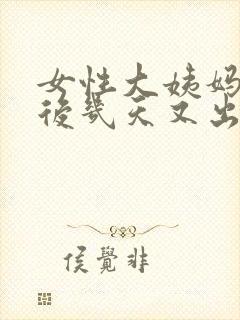 女性大姨妈
後几天又出
侯覺非